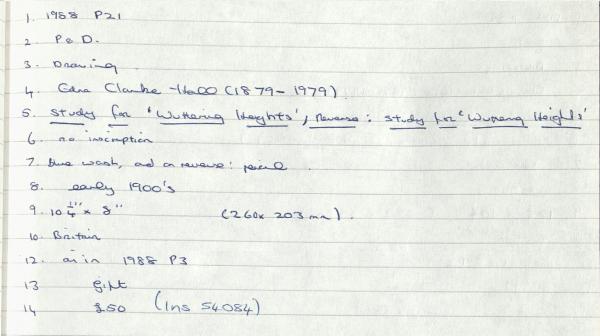 1. 1988 P21
2. P & D.
3. Drawing
4. Edna Clarke-Hall (1879-1979)
5. Study for 'Wuthering Heights'; Reverse: study for 'Wuthering Heights'
6. no inscription
7. blue wash, and on reverse: pencil.
8. early 1900's
9. 10 1/4" x 8" (260x 203 mm).
10. Britain
12. as in 1988 P3
13 gift
14 £50 (Ins 54084)